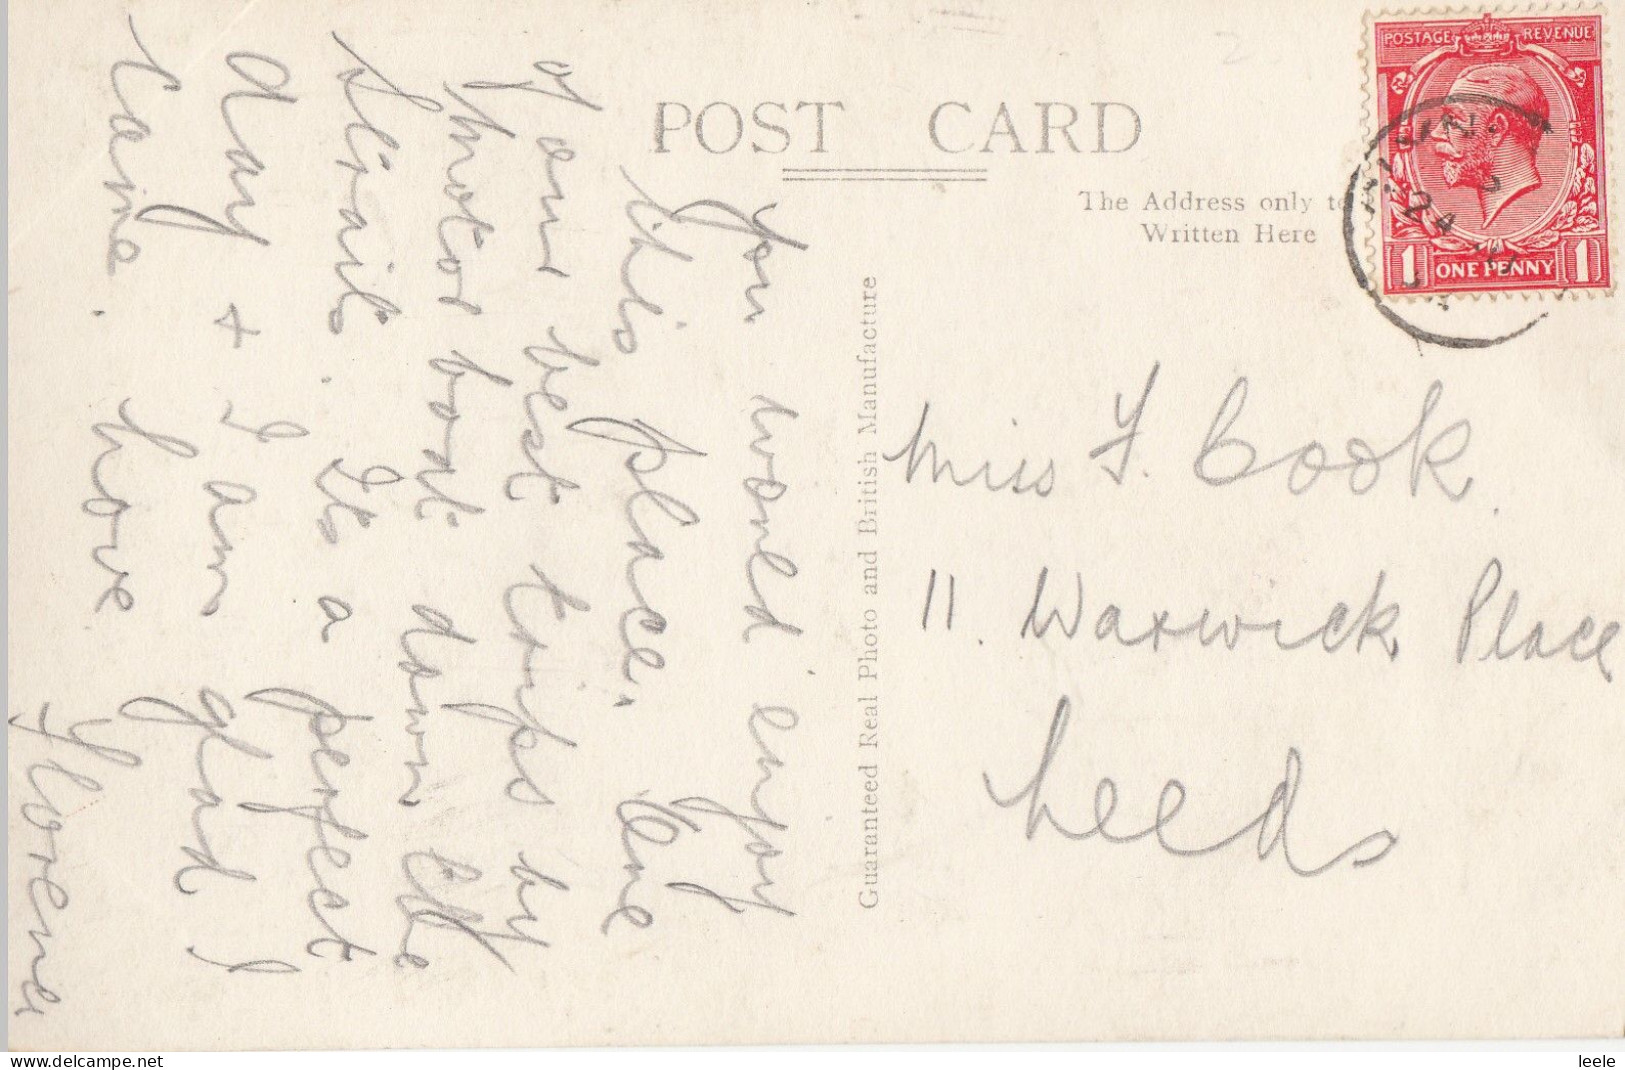 POST CARD
The Address only to
Written Here
POSTAGE REVENUE
1 ONE PENNY 1
Guaranteed Real Photo and British Manufacture
Miss F. Cook.
11. Warwick Place
Leeds
You would enjoy
this place. One
of our best trips by
motor boat down the
Straits. Its a perfect
day + I am glad I
came. Love
Florence
Visit leele's store on Delcampe.net
leele